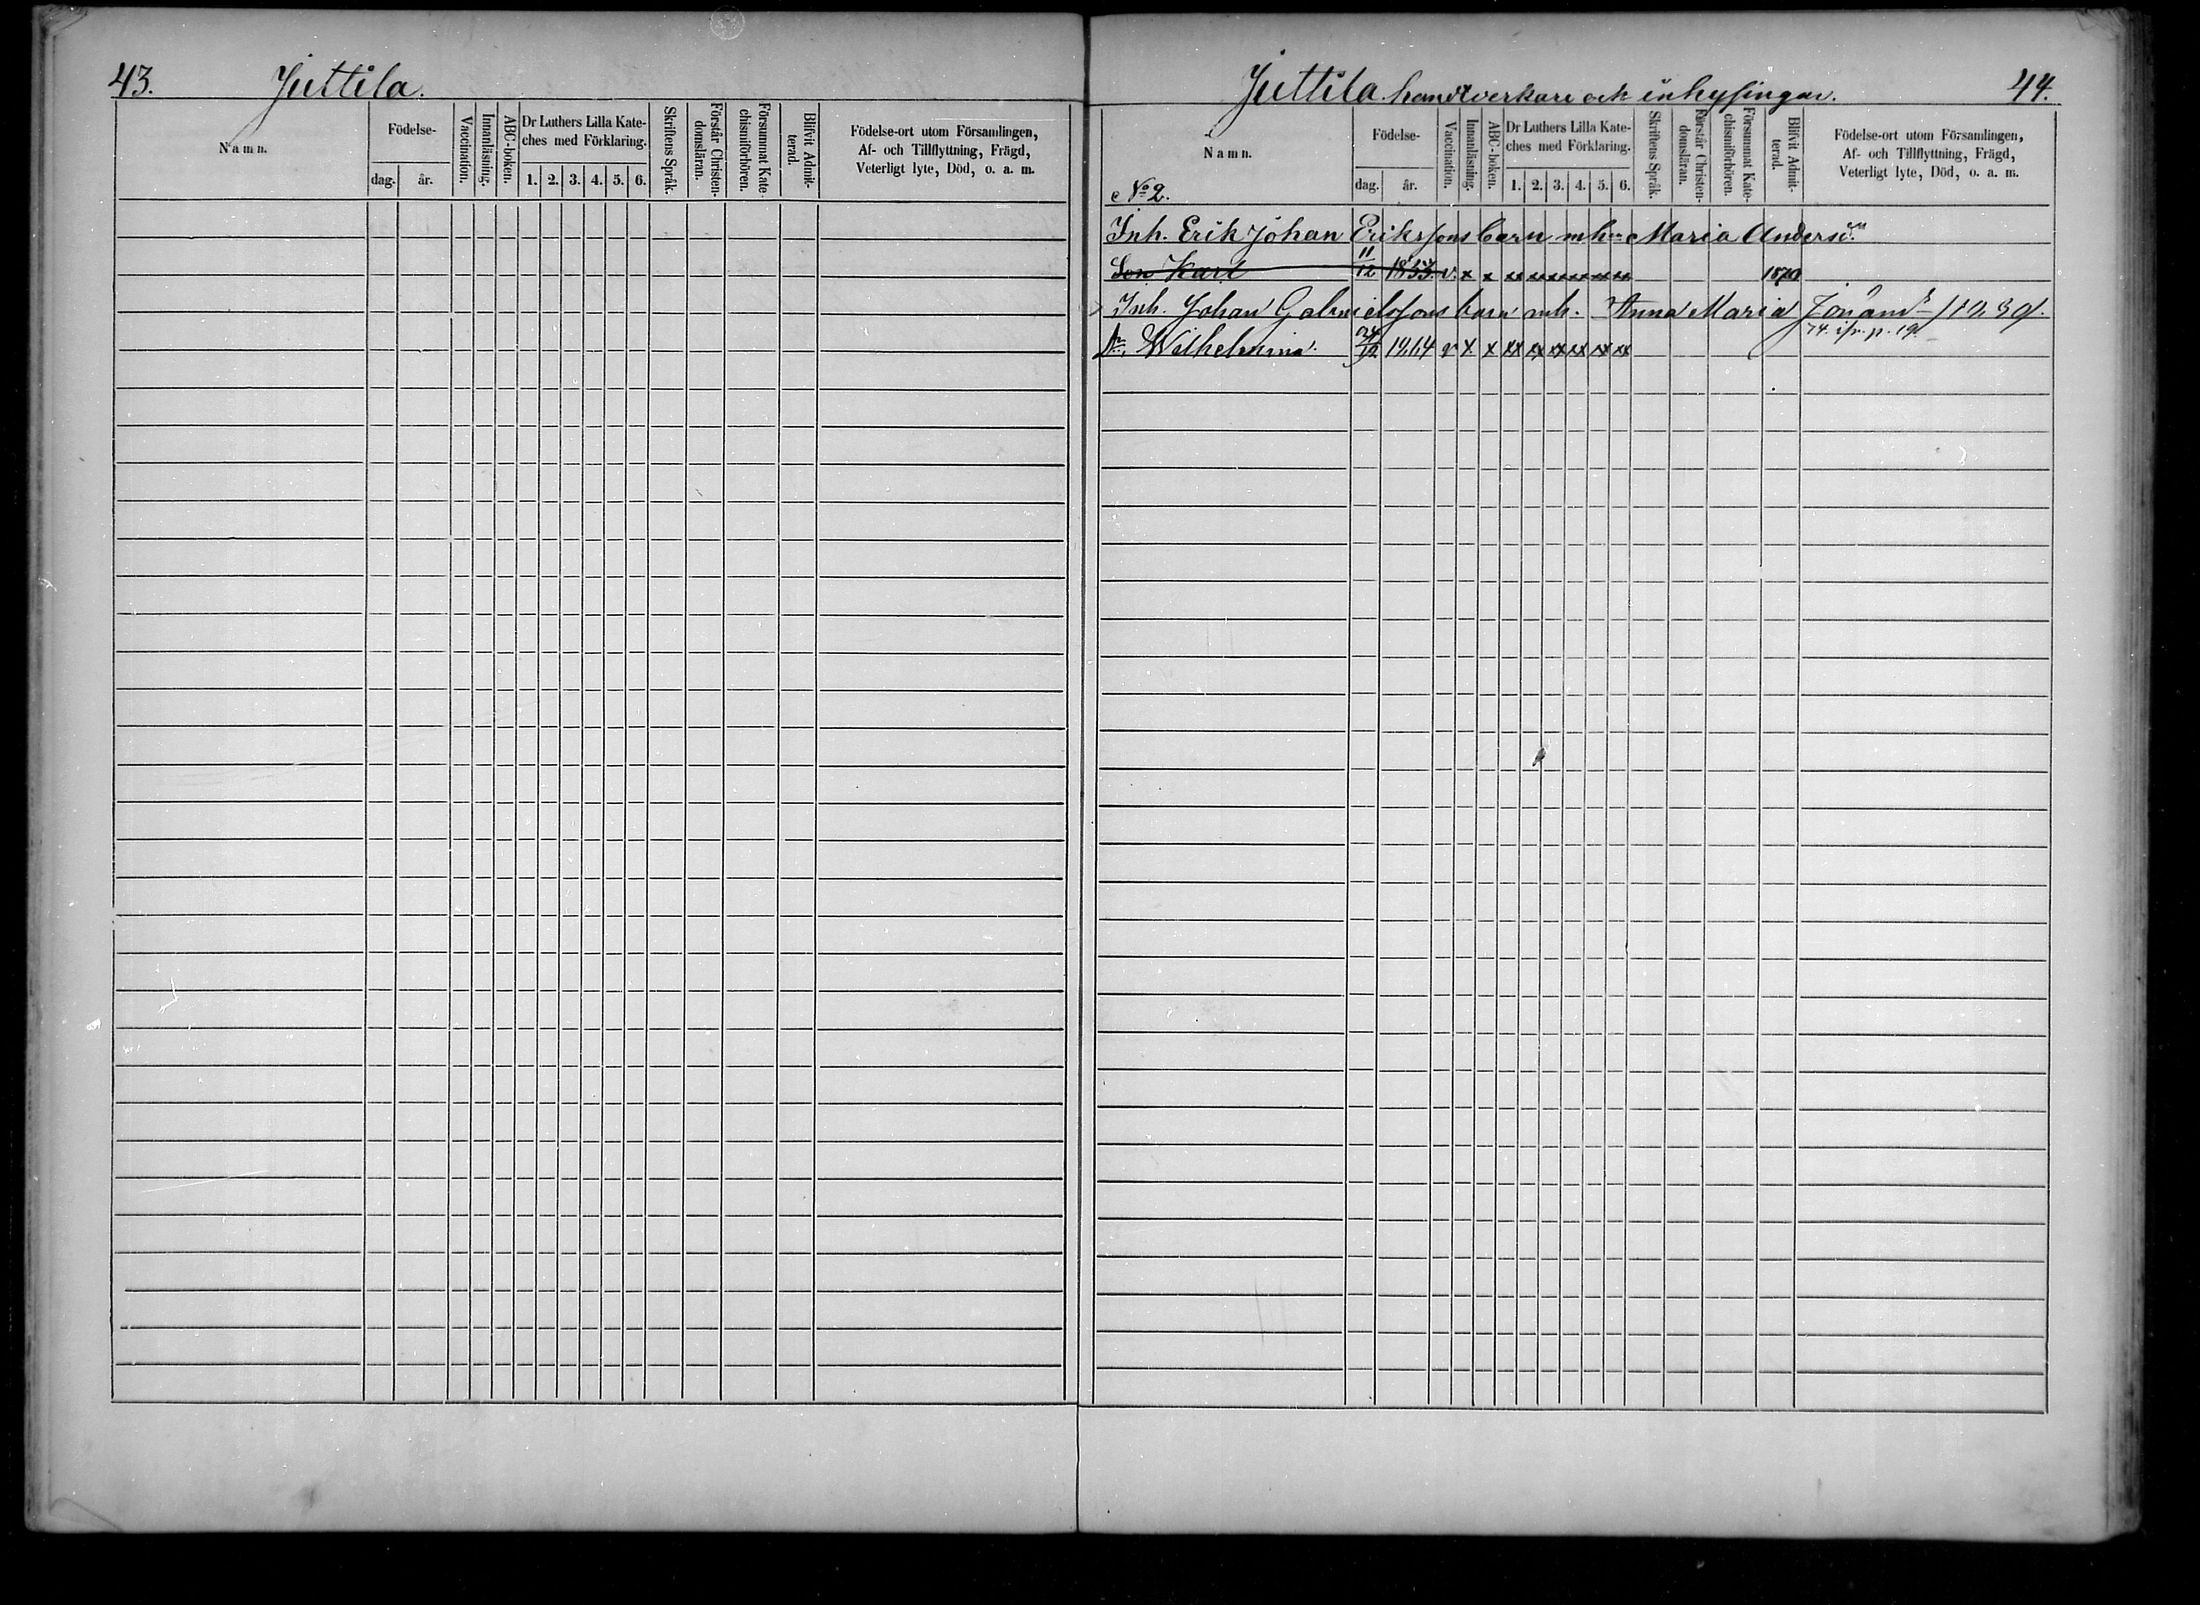 43. Juttila.
Namn.
Födelse-
dag. år.
Vaccination.
Innanläsning.
ABC-boken.
Dr Luthers Lilla Kate-
ches med Förklaring.
1. 2. 3. 4. 5. 6.
Skriftens Språk.
Förstår Christen-
domsläran.
Försummat Kate-
chismiförhören.
Blifvit Admit-
terad.
Födelse-ort utom Församlingen,
Af- och Tillflyttning, Frägd,
Veterligt lyte, Död, o. a. m.
Juttila handtverkare och inhysingar. 44.
Namn.
Födelse-
dag. år.
Vaccination.
Innanläsning.
ABC-boken.
Dr Luthers Lilla Kate-
ches med Förklaring.
1. 2. 3. 4. 5. 6.
Skriftens Språk.
Förstår Christen-
domsläran.
Försummat Kate-
chismiförhören.
Blifvit Admit-
terad.
Födelse-ort utom Församlingen,
Af- och Tillflyttning, Frägd,
Veterligt lyte, Död, o. a. m.
No 2.
Inh. Erik Johan Erikssons barn mh Maria Anders
Son Karl 11/12 1853. v. x x xx xx xx xx xx xx 1870
Inh. Johan Gabrielssons barn mh. Anna Maria
74. p. 19
Wilhelmina v x x xx xx xx xx xx xx